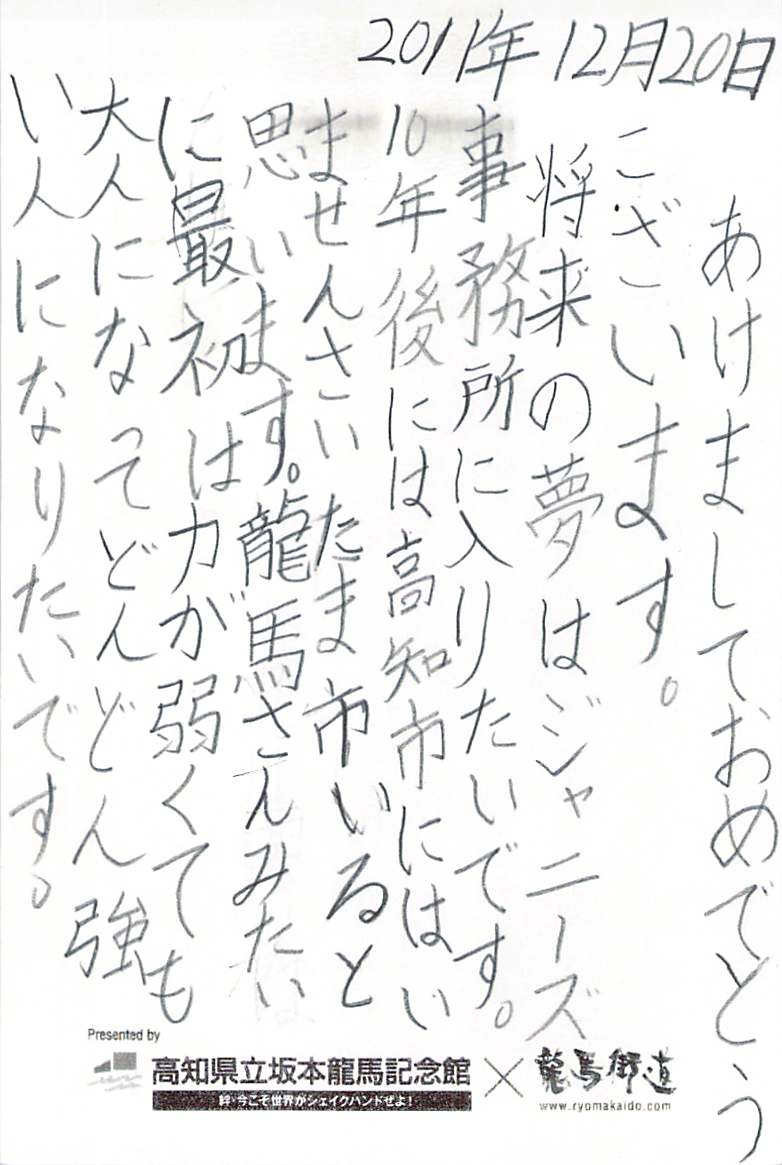 2011年12月20日
あけましておめでとう
ございます。
将来の夢はジャニーズ
事務所に入りたいです。
10年後には高知市にはい
ませんさいたま市いると
思います。龍馬さんみたい
に最初は力が弱くても
大人になってどんどん強
い人になりたいです。
Presented by
高知県立坂本龍馬記念館×龍馬街道
絆・今こそ世界がシェイクハンドぜよ!
www.ryomakaido.com